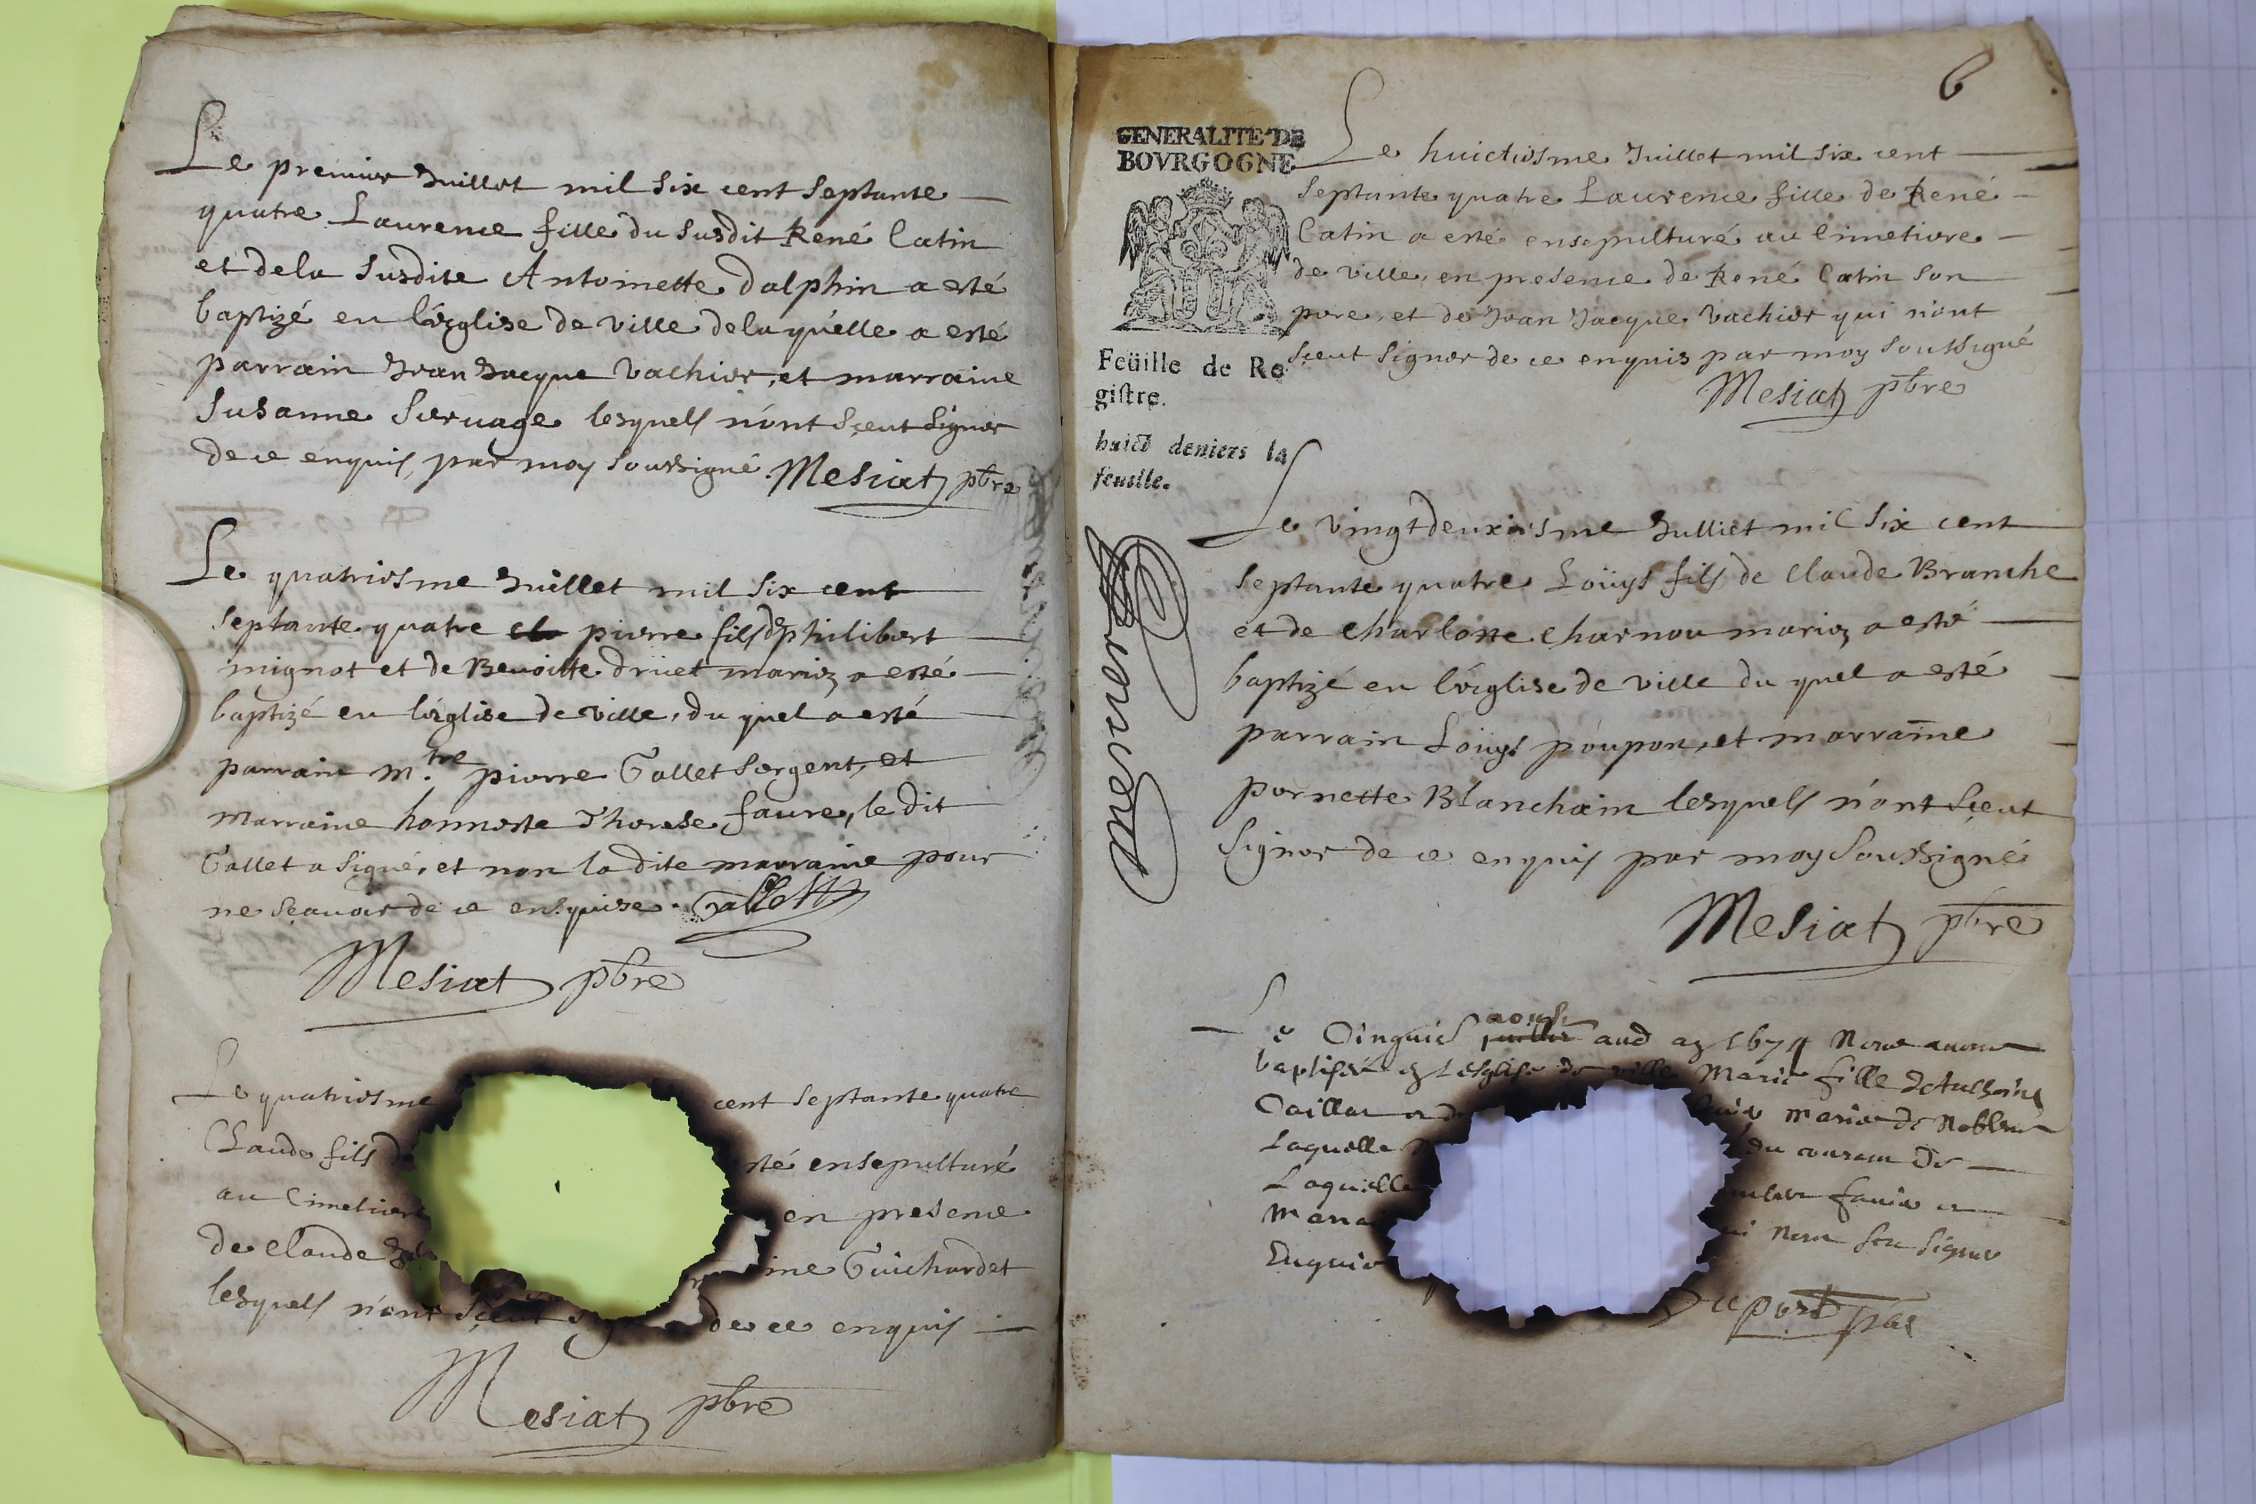 Le premier Juillet mil six cent septante
quatre Laurence fille du susdit René Catin
et de la susdite Antoinette dalphin a esté
baptizé en l'ésglise de ville de la quelle a esté
parrain Jean Jacque Vachier, et marraine
Susanne Servage lesquels n'ont sçeut signer
de ce enquis, par moy soussigné. Mesiat pbre
Le quatriesme Juillet mil six cent
septante quatre pierre fils de philibert
mignot et de Benoitte drüet mariez a esté
baptizé en l'ésglise de ville, du quel a esté
parrain m.tre pierre Gallet sergent, et
marraine honneste Therese faure, le dit
Gallet a signé, et non la dite marraine pour
ne sçavoir de ce ensquise. Gallet
Mesiat pbre
Le quatriesme cent septante quatre
Claude fils de sté ensepulturé
au Cimetiere en presence
de Claude ine Guichardet
lesquels n'ont sçeut de ce enquis
Mesiat pbre
6
GENERALITE DE
BOVRGOGNE
Feüille de Re
gistre.
huict deniers la
feuille.
Le huictiesme Juillet mil six cent
septante quatre Laurence fille de René
Catin a esté ensepulturé au Cimetiere
de ville, en presence de René Catin son
pere, et de Jean Jacque Vachier qui n'ont
sçeut signer de ce enquis par moy soussigné
Mesiat pbre
Le vingt deuxiesme Julliet mil six cent
septante quatre Loüys fils de Claude Branche
et de Charlotte Charnou mariez a esté
baptizé en l'ésglise de ville du quel a esté
parrain Loüys poupon, et marraine
pernette Blanchain lesquels n'ont sçeut
signer de ce enquis par moy soussigné
Mesiat pbre
Le Cinquies aoust aud an 1674 
baptisée en Lesglise de ville Marie fille
Caillat et de marie de
Laquelle du courant De
Laquelle
Marra
Enquis signer
Duport pbre